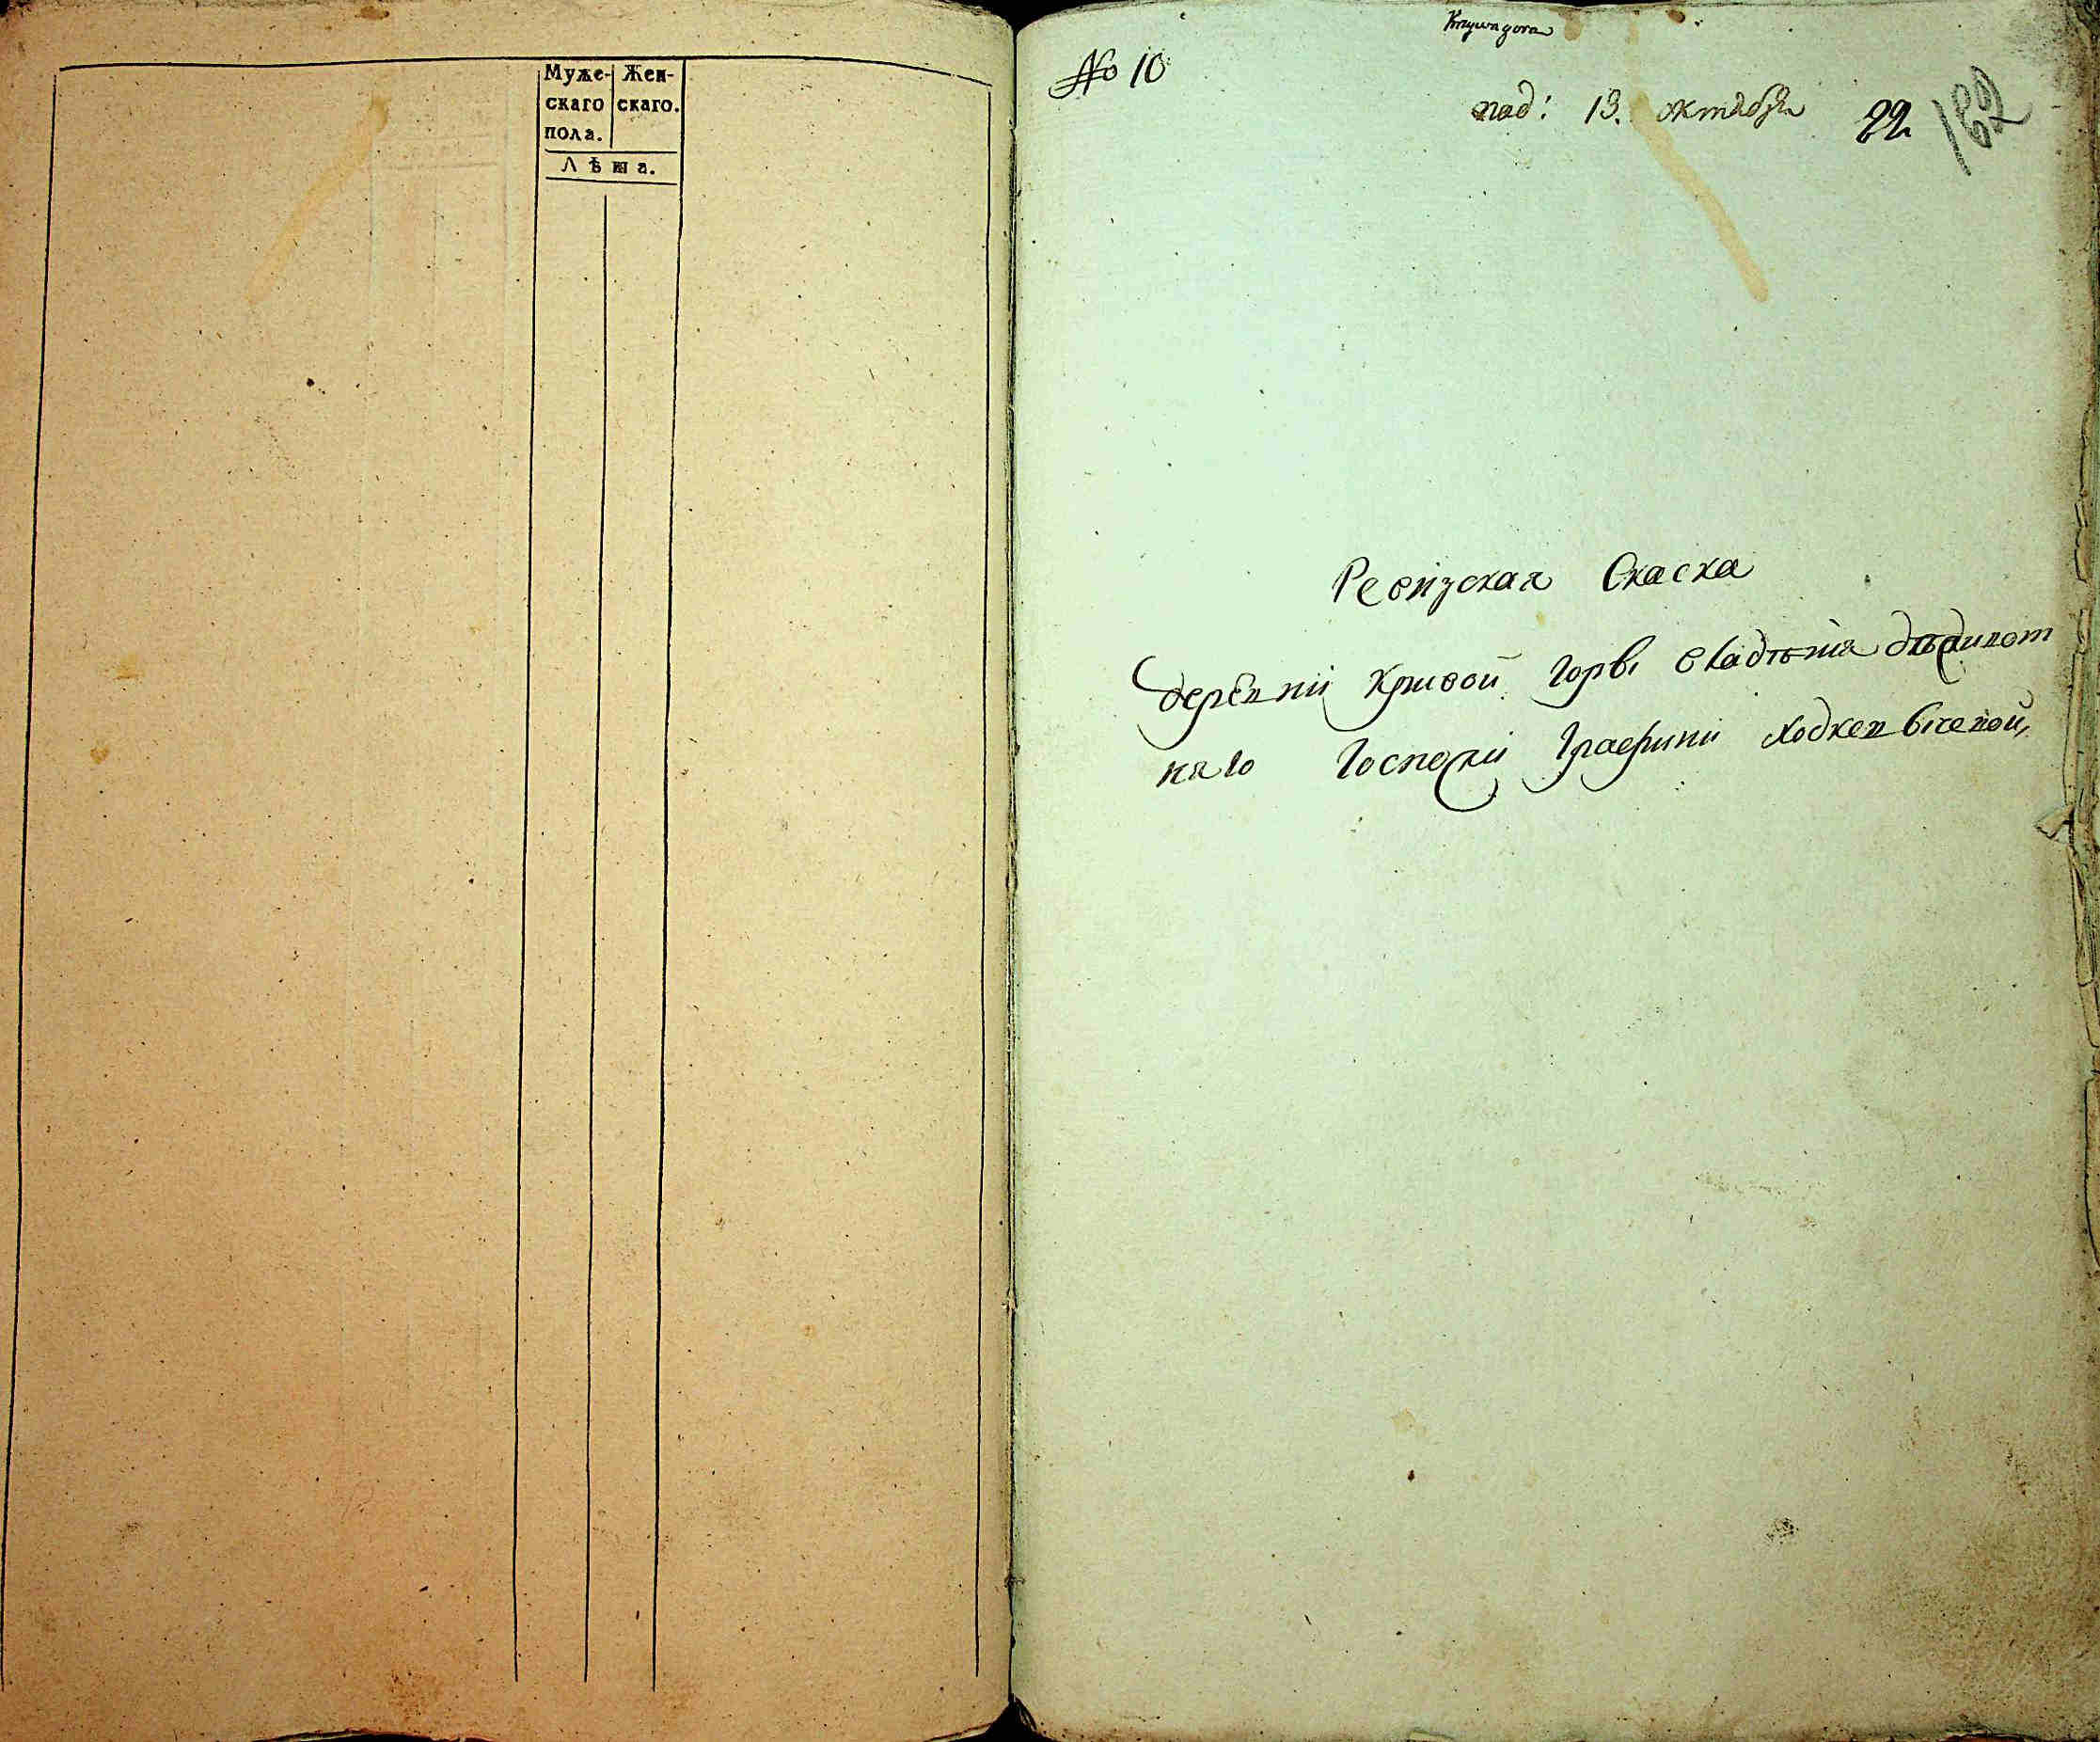 Муже- Жен-
скаго скаго.
пола.
Лѣта.
Krzywagora
No 10
под: 13. октября 22. 182
Ревизская Скаска
деревни Кривой Горы владѣнiя дѣдичт
наго Госпожи Графини Ходкевычевой,